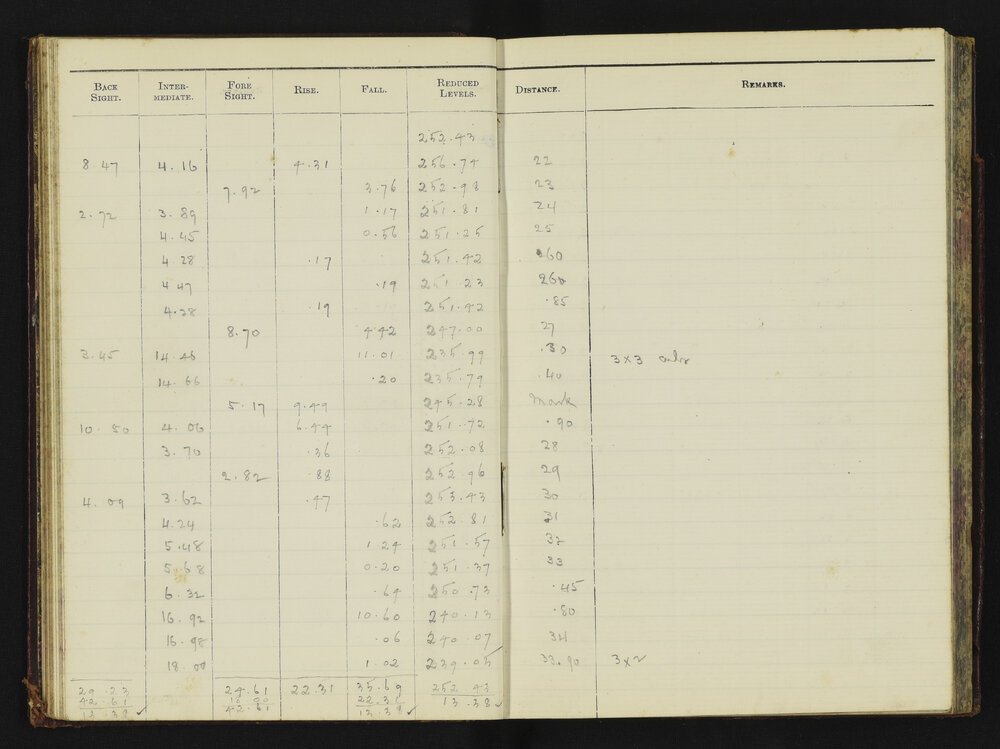 BACK SIGHT. INTER-MEDIATE. FORE SIGHT. RISE. FALL. REDUCED LEVELS. DISTANCE. REMARKS.
252.43
8.47 4.16 4.31 256.74 22
7.92 3.76 252.98 23
2.72 3.89 1.17 251.81 24
4.45 0.56 251.25 25
4.28 .17 251.42 60
4.47 .19 251.23 260
4.28 .19 251.42 .85
8.70 4.42 247.00 27
3.45 14.46 11.01 235.99 .30 3x3 only
14.66 .20 235.79 .40
5.17 9.49 245.28 Mark
10.50 4.06 6.44 251.72 .90
3.70 .36 252.08 28
2.82 .88 252.96 29
4.09 3.62 .47 253.43 30
4.24 .62 252.81 31
5.48 1.24 251.57 32
5.68 0.20 251.37 33
6.32 .64 250.73 .45
16.92 10.60 240.13 .80
16.98 .06 240.07 34
18.00 1.02 239.05 33.90 3x2
29.23 24.61 22.31 35.69 252.43
42.61 18.00 22.31 13.38 ✓
13.38 ✓ 42.61 13.38 ✓